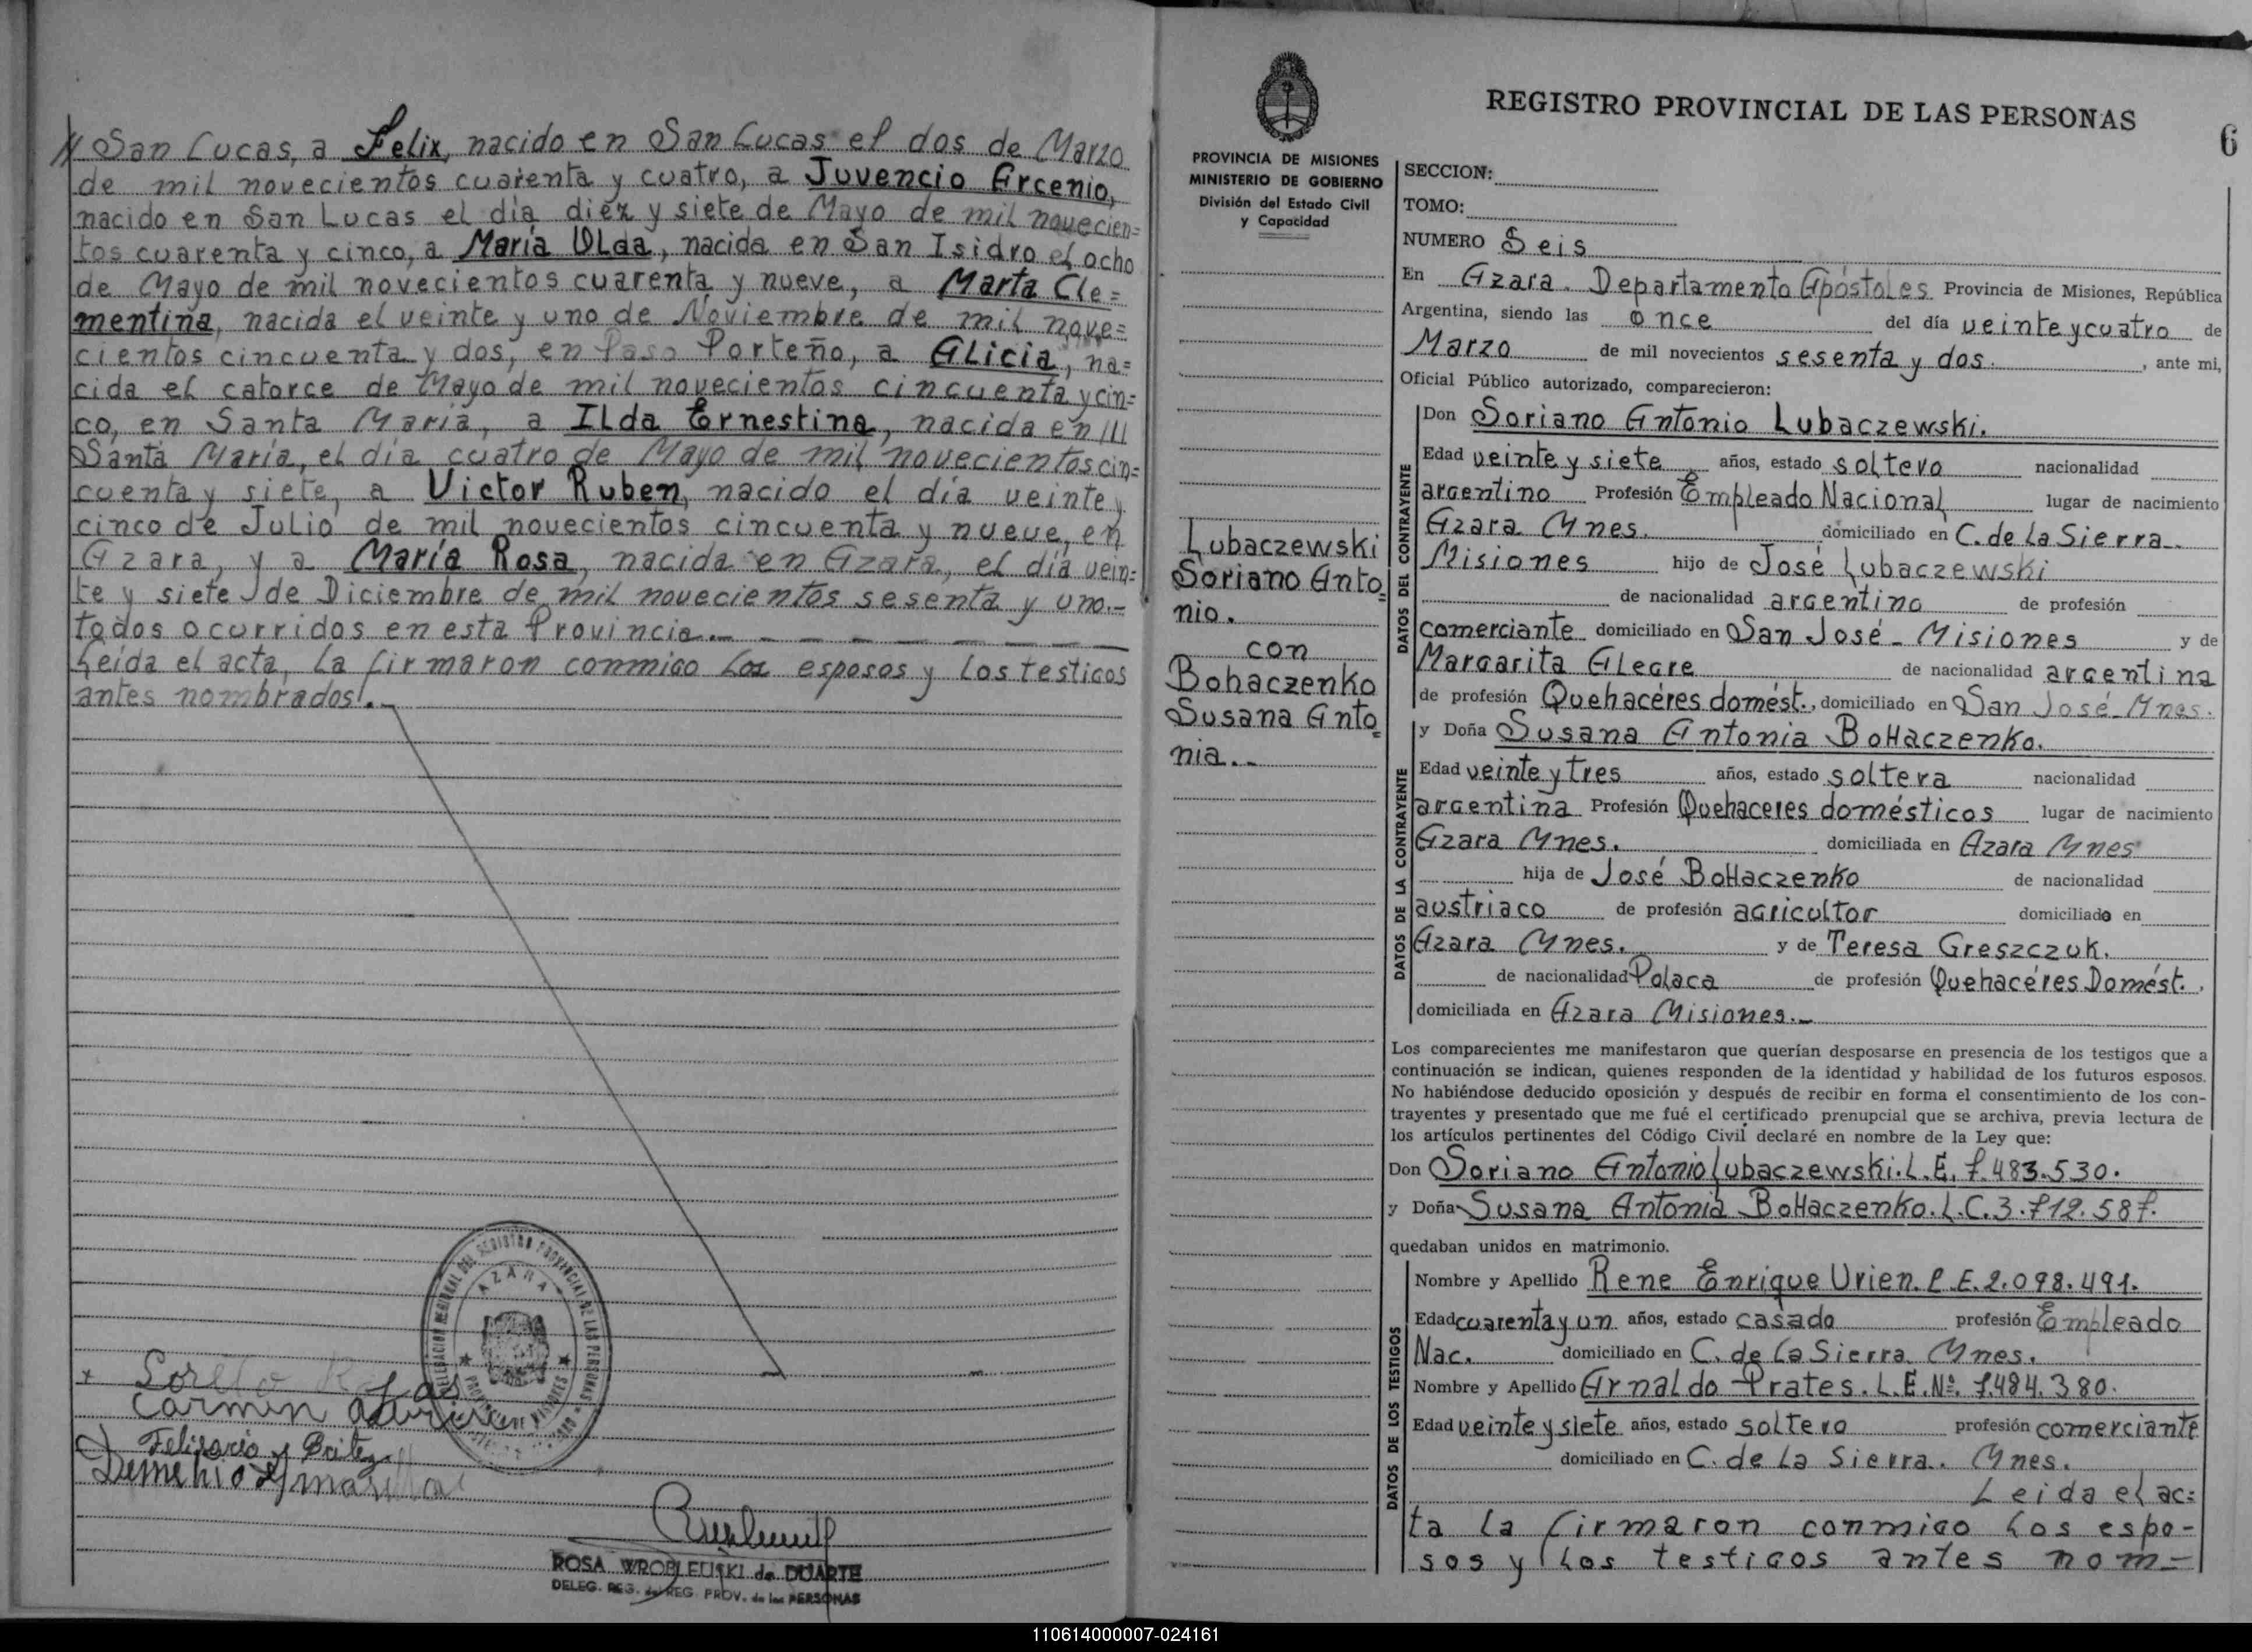 // San Lucas, a Felix, nacido en San Lucas el dos de Marzo
de mil novecientos cuarenta y cuatro, a Juvencio Arcenio,
nacido en San Lucas el día diez y siete de Mayo de mil novecien=
tos cuarenta y cinco, a María Olga, nacida en San Isidro el ocho
de Mayo de mil novecientos cuarenta y nueve, a Marta Cle=
mentina, nacida el veinte y uno de Noviembre de mil nove=
cientos cincuenta y dos, en Paso Porteño, a Alicia, na=
cida el catorce de Mayo de mil novecientos cincuenta y cin=
co, en Santa María, a Ilda Ernestina, nacida en ///
Santa María, el día cuatro de Mayo de mil novecientos cin=
cuenta y siete, a Victor Ruben, nacido el día veinte y
cinco de Julio de mil novecientos cincuenta y nueve, en
Azara, y a María Rosa, nacida en Azara, el día vein=
te y siete de Diciembre de mil novecientos sesenta y uno.-
todos ocurridos en esta Provincia.-
Leída el acta, la firmaron conmigo los esposos y los testigos
antes nombrados.-
DELEGACION REGIONAL DEL REGISTRO PROVINCIAL DE LAS PERSONAS
AZARA
PROVINCIA DE MISIONES
Carmen
Felisario Britez
ROSA WROBLEUSKI de DUARTE
DELEG. REG. del REG. PROV. de las PERSONAS
REGISTRO PROVINCIAL DE LAS PERSONAS
6
PROVINCIA DE MISIONES
MINISTERIO DE GOBIERNO
División del Estado Civil
y Capacidad
Lubaczewski
Soriano Anto=
nio.
con
Bohaczenko
Susana Anto=
nia.-
SECCION:
TOMO:
NUMERO Seis
En Azara. Departamento Apóstoles Provincia de Misiones, República
Argentina, siendo las once del día veinte y cuatro de
Marzo de mil novecientos sesenta y dos. , ante mi,
Oficial Público autorizado, comparecieron:
DATOS DEL CONTRAYENTE
Don Soriano Antonio Lubaczewski.
Edad veinte y siete años, estado soltero nacionalidad
argentino Profesión Empleado Nacional lugar de nacimiento
Azara Mnes. domiciliado en C. de La Sierra
Misiones hijo de José Lubaczewski
de nacionalidad argentino de profesión
comerciante domiciliado en San José - Misiones y de
Margarita Alegre de nacionalidad argentina
de profesión Quehacéres domést., domiciliado en San José Mnes.
DATOS DE LA CONTRAYENTE
y Doña Susana Antonia BoHaczenko.
Edad veinte y tres años, estado soltera nacionalidad
argentina Profesión Quehaceres domésticos lugar de nacimiento
Azara Mnes. domiciliada en Azara Mnes
hija de José BoHaczenko de nacionalidad
austriaco de profesión agricultor domiciliado en
Azara Mnes. y de Teresa Greszczuk.
de nacionalidad Polaca de profesión Quehacéres Domést.,
domiciliada en Azara Misiones.-
Los comparecientes me manifestaron que querían desposarse en presencia de los testigos que a
continuación se indican, quienes responden de la identidad y habilidad de los futuros esposos.
No habiéndose deducido oposición y después de recibir en forma el consentimiento de los con-
trayentes y presentado que me fué el certificado prenupcial que se archiva, previa lectura de
los artículos pertinentes del Código Civil declaré en nombre de la Ley que:
Don Soriano Antonio Lubaczewski. L.E. 7.483.530.
y Doña Susana Antonia BoHaczenko. L.C. 3.712.587.
quedaban unidos en matrimonio.
DATOS DE LOS TESTIGOS
Nombre y Apellido Rene Enrique Urien. L.E. 2.098.491.
Edad cuarenta y un años, estado casado profesión Empleado
Nac. domiciliado en C. de La Sierra Mnes.
Nombre y Apellido Arnaldo Prates. L.E. Nº. 7.484.380.
Edad veinte y siete años, estado soltero profesión comerciante
domiciliado en C. de La Sierra. Mnes.
Leida el ac=
ta la firmaron conmigo los espo-
sos y los testigos antes nom-
110614000007-024161